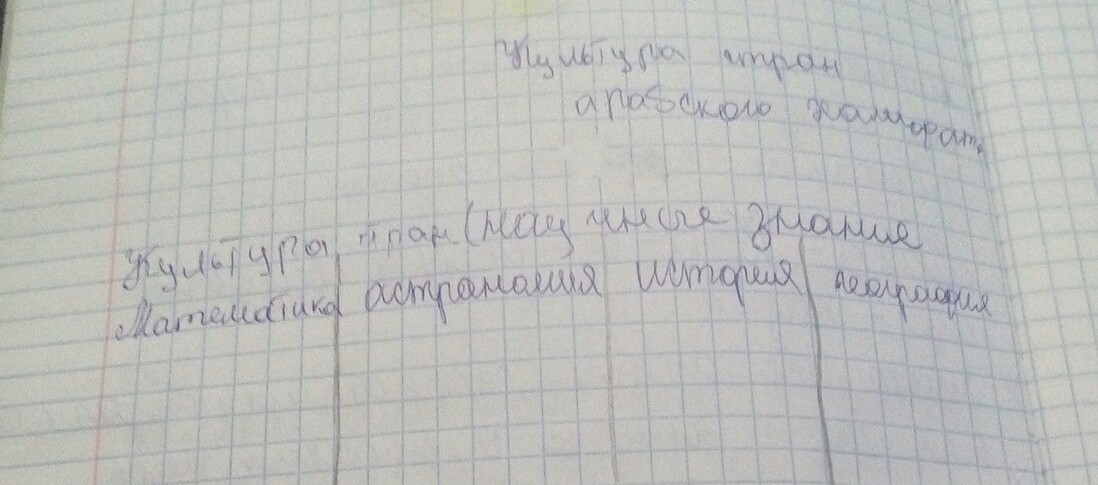 Культура стран
арабского халифата
Культура стран (научные знание
Математика астрономия история география